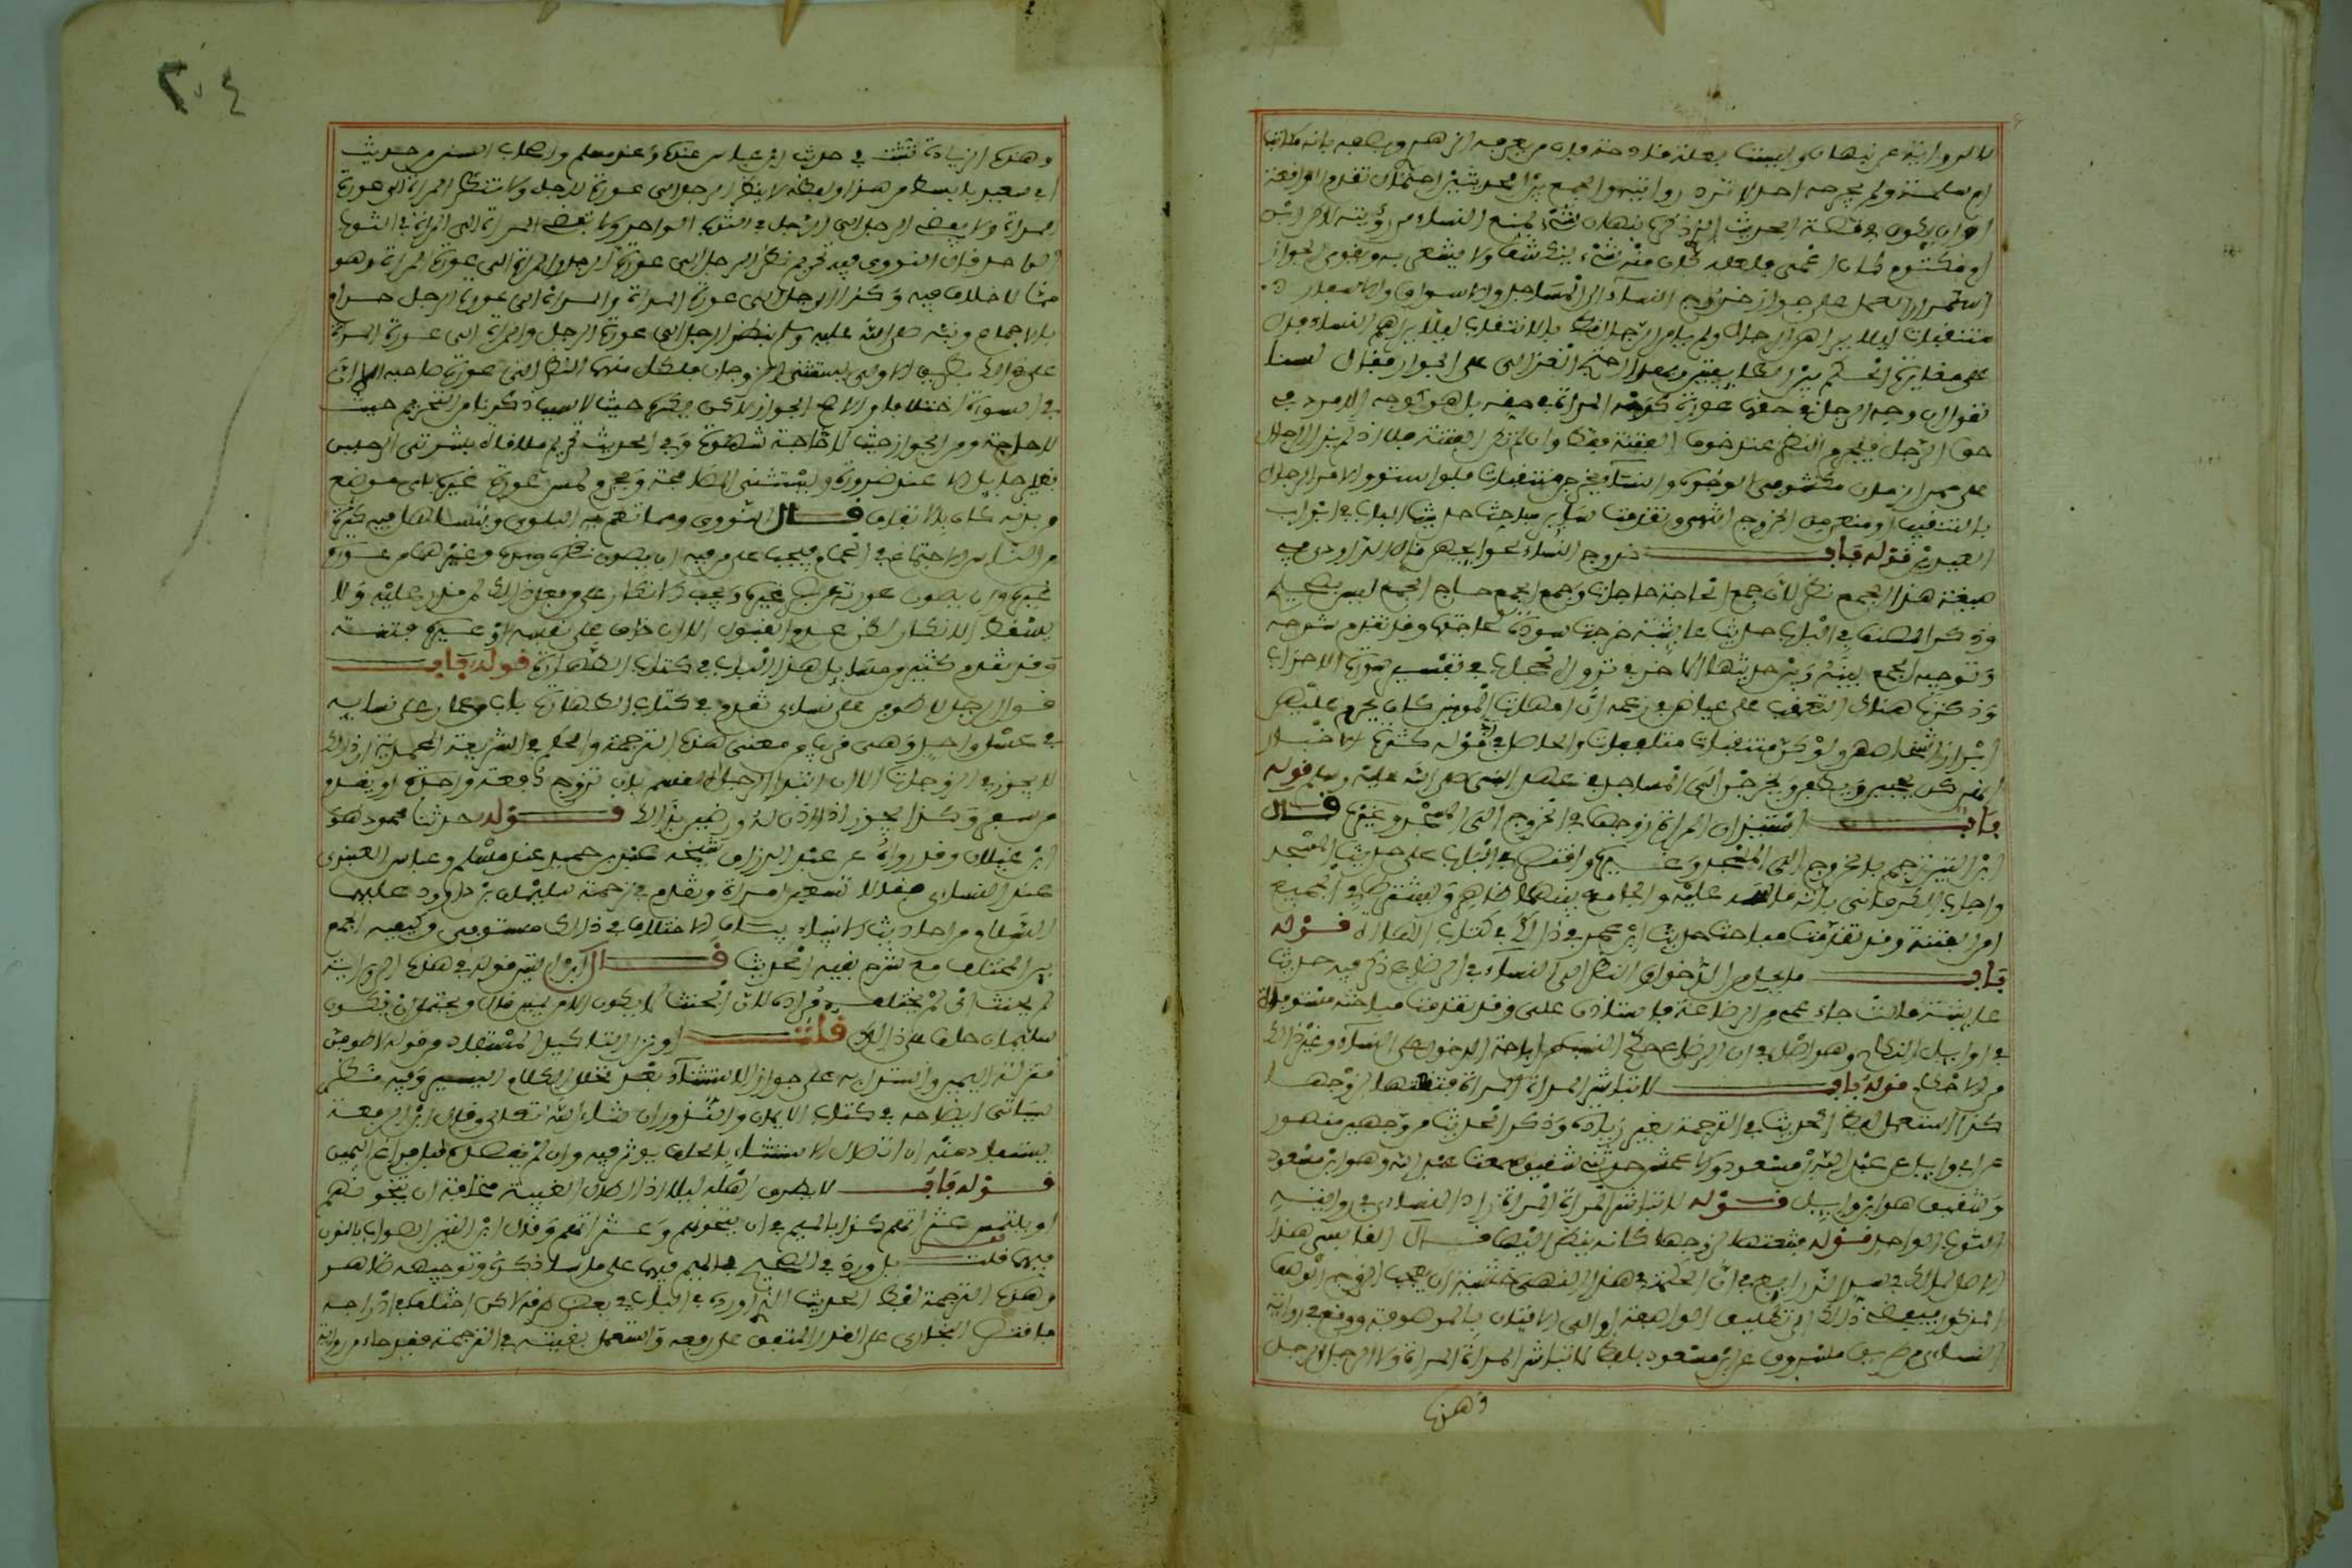 بالرواية عن نبهان وليست بعلة قادحة فان من يعرفه الزهري ويصفه بانه مكاتب
ام سلمة ولم يجرحه احد لا ترد روايته والجمع بين الحديثين احتمال تقدم الواقعة
او ان يكون في قصة الحديث الذي ذكره نبهان شيء يمنع النساء من رؤيته لكون ابن
ام مكتوم كان اعمى فلعله كان منه شيء ينكشف ولا يشعر به ويقوي الجواز
استمرار العمل على جواز خروج النساء الى المساجد والاسواق والاسفار
متنقبات ليلا يراهن الرجال ولم يامر الرجال قط بالانتقاب ليلا يراهم النساء فدل
على مغايرة الحكم بين الطايفتين وبهذا احتج الغزالي على الجواز فقال لسنا
نقول ان وجه الرجل في حقها عورة كوجه المراة في حقه بل هو كوجه الامرد في
حق الرجل فيحرم النظر عند خوف الفتنة فقط وان لم تكن الفتنة فلا اذ لم يزل الرجال
على ممر الزمان مكشوفي الوجوه والنساء يخرجن متنقبات فلو استووا لامر الرجال
بالتنقب او منعن من الخروج انتهى وتقدمت ساير مباحث حديث الباب في ابواب
العيدين قوله باب خروج النساء لحوايجهن قال الداودي في
صيغة هذا الجمع نظر لان جمع الحاجة حاجات وجمع الجمع حاج الجمع ليس بصحيح
وذكر المصنف في الباب حديث عايشة خرجت سودة لحاجتها وقد تقدم شرحه
وتوجيه الجمع بينه وبين حديثها الاخر في نزول الحجاب في تفسير سورة الاحزاب
وذكرت هناك التعقب على عياض في زعمه ان امهات المومنين كان يحرم عليهن
ابراز اشخاصهن ولو كن متنقبات متلففات والحاصل في قوله كثرة الاخبار
انهن كن يحججن ويطفن ويخرجن الى المساجد في عهد النبي صلى الله عليه وسلم قوله
باب استيذان المراة زوجها في الخروج الى المسجد وغيره قال
ابن التين ترجم بالخروج الى المسجد وغيره واقتصر في الباب على حديث المسجد
واجاب الكرماني بانه قاسه عليه والجامع بينهما ظاهر ويشترط في الجميع
امن الفتنة وقد تقدمت مباحث حديث ابن عمر في ذلك في كتاب الصلاة قوله
باب ما يحل من الدخول والنظر الى النساء في الرضاع ذكر فيه حديث
عايشة قالت جاء عمي من الرضاعة فاستاذن علي وقد تقدمت مباحثه مستوفاة
في اوايل النكاح وهو اصل في ان للرضاع حكم النسب من اباحة الدخول على النساء وغير ذلك
من الاحكام قوله باب لا تباشر المراة المراة فتنعتها لزوجها
كذا استعمل لفظ الحديث في الترجمة بغير زيادة وذكر الحديث من وجهين منصور
عن ابي وايل عن عبد الله بن مسعود والاعمش حدثني شقيق سمعت عبد الله وهو ابن مسعود
وشقيق هو ابو وايل قوله لا تباشر المراة المراة زاد النساءي في روايته
في الثوب الواحد قوله فتنعتها لزوجها كانه ينظر اليها قال القابسي هذا
اصل لمالك في سد الذرايع فان الحكمة في هذا النهي خشية ان يعجب الزوج الوصف
المذكور فيفضي ذلك الى تطليق الواصفة او الى الافتتان بالموصوفة ووقع في رواية
النساءي من طريق مسروق عن ابن مسعود بلفظ لا تباشر المراة المراة ولا الرجل الرجل
وهذه
٢٠٤
وهذه الزيادة ثبتت في حديث ابن عباس عنده وعند مسلم واصحاب السنن من حديث
ابي سعيد بابسط من هذا ولفظه لا ينظر الرجل الى عورة الرجل ولا تنظر المراة الى عورة
المراة ولا يفضي الرجل الى الرجل في الثوب الواحد ولا تفضي المراة الى المراة في الثوب
الواحد قال النووي فيه تحريم نظر الرجل الى عورة الرجل والمراة الى عورة المراة وهو
مما لا خلاف فيه وكذا الرجل الى عورة المراة والمراة الى عورة الرجل حرام
بالاجماع ونبه صلى الله عليه وسلم بنظر الرجل الى عورة الرجل والمراة الى عورة المراة
على ذلك بطريق الاولى ويستثنى الزوجان فلكل منهما النظر الى عورة صاحبه الا ان
في السوءة اختلافا والاصح الجواز لاكن يكره حيث لا سبب
للحاجة ومن الجواز حيث لا حاجة شهوة وفي الحديث تحريم ملاقاة بشرتي الرجلين
بغير حايل الا عند ضرورة ويستثنى المصافحة ويحرم لمس عورة غيره باي موضع
من بدنه كان بالاتفاق قال النووي ومما تعم به البلوى ويتساهل فيه كثير
من الناس الاجتماع في الحمام فيجب على من فيه ان يصون نظره ويده وغيرهما عن عورة
غيره وان يصون عورته عن بصر غيره ويجب الانكار على من فعل ذلك لمن قدر عليه ولا
يسقط الانكار بظن عدم القبول الا ان خاف على نفسه او غيره فتنة
وقد تقدم كثير من مسايل هذا الباب في كتاب الطهارة قوله باب
قول الرجل لاطوفن على نساءي تقدم في كتاب الطهارة باب من دار على نسايه
في غسل واحد وهي قريب من معنى هذه الترجمة والحكم في الشريعة المحمدية ان ذلك
لا يجوز في الزوجات الا ان ابتدا الرجل القسم بان تزوج دفعة واحدة او يقدم
من سفر وكذا يجوز اذا اذن له ورضين بذلك قوله حدثنا محمود هو
ابن غيلان وقد رواه عن عبد الرزاق شيخه عبد بن حميد عند مسلم وعباس العنبري
عند النساءي فقالا تسعين امراة وتقدم في ترجمة سليمان بن داوود عليهما
السلام من احاديث الانبياء بيان الاختلاف في ذلك مستوفى وكيفية الجمع
بين المختلف مع شرح بقية الحديث قال ابن التين قوله في هذه الرواية
لم يحنث اي لم يتخلف مراده لان الحنث لا يكون الا عن يمين قال ويحتمل ان يكون
سليمان حلف على ذلك قلت او نزل التاكيد المستفاد من قوله لاطوفن
منزلة اليمين واستدل به على جواز الاستثناء بعد تخلل الكلام اليسير وفيه نظر
سياتي ايضاحه في كتاب الايمان والنذور ان شاء الله تعالى وقال ابن الرفعة
يستفاد منه ان اتصال الاستثناء بالحلف يوثر فيه وان لم يقصد قبل فراغ اليمين
قوله باب لا يطرق اهله ليلا اذا اطال الغيبة مخافة ان يتخونهم
او يلتمس عثراتهم كذا بالميم في ان يتخونهم وعثراتهم وقال ابن التين الصواب بالنون
فيهما قلت بل ورد في الصحيح بالميم فيهما على ما ساذكره وتوجيهه ظاهر
وهذه الترجمة لفظ الحديث الذي اورده في الباب في بعض طرقه لاكن اختلف في ادراجه
فاقتصر البخاري على القدر المتفق على رفعه واستعمل بقيته في الترجمة فقد جاء من رواية